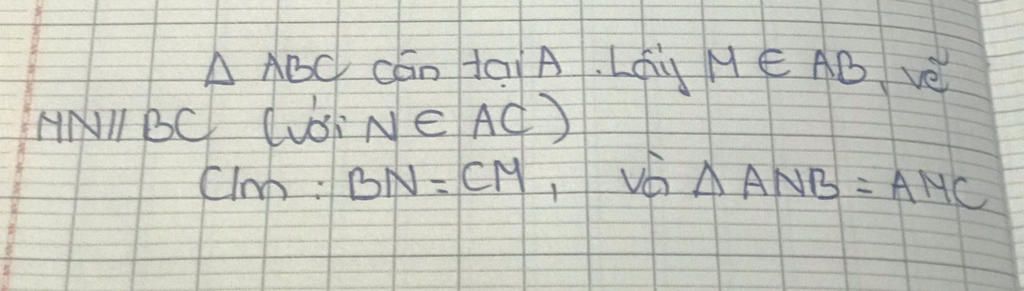 Δ ABC cân tại A. Lấy M ∈ AB, vẽ
MN // BC (với N ∈ AC)
Clm : BN = CM, và Δ ANB = AMC